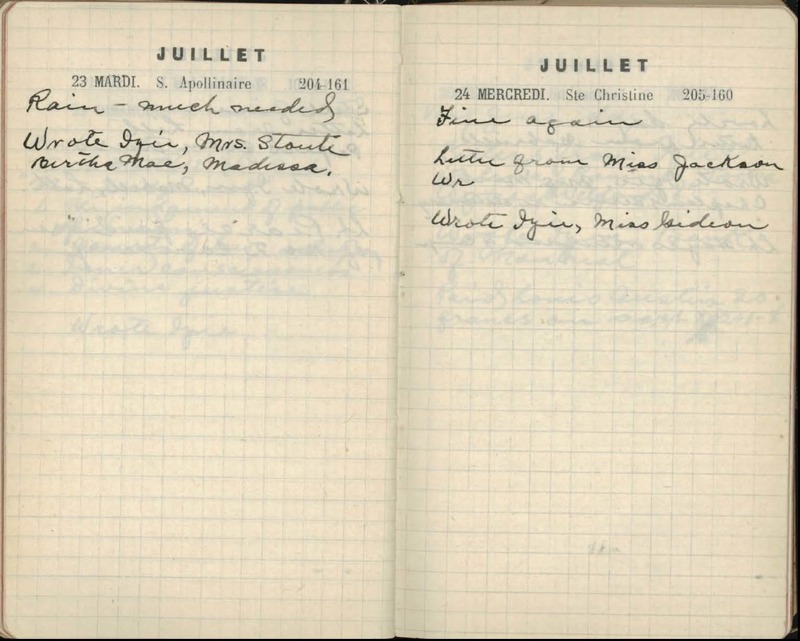 JUILLET
23 MARDI. S. Apollinaire 204-161
Rain - much needed
Wrote Izie, Mrs. Stoute
Bertha Mae, Madissa.
Wrote Izie
JUILLET
24 MERCREDI. Ste Christine 205-160
Fine again
Letter from Miss Jackson
Wr
Wrote Izie, Miss Gideon